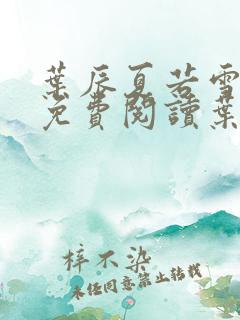 葉辰夏若雪
免費閱讀葉
梓不染
未經同意禁止轉載